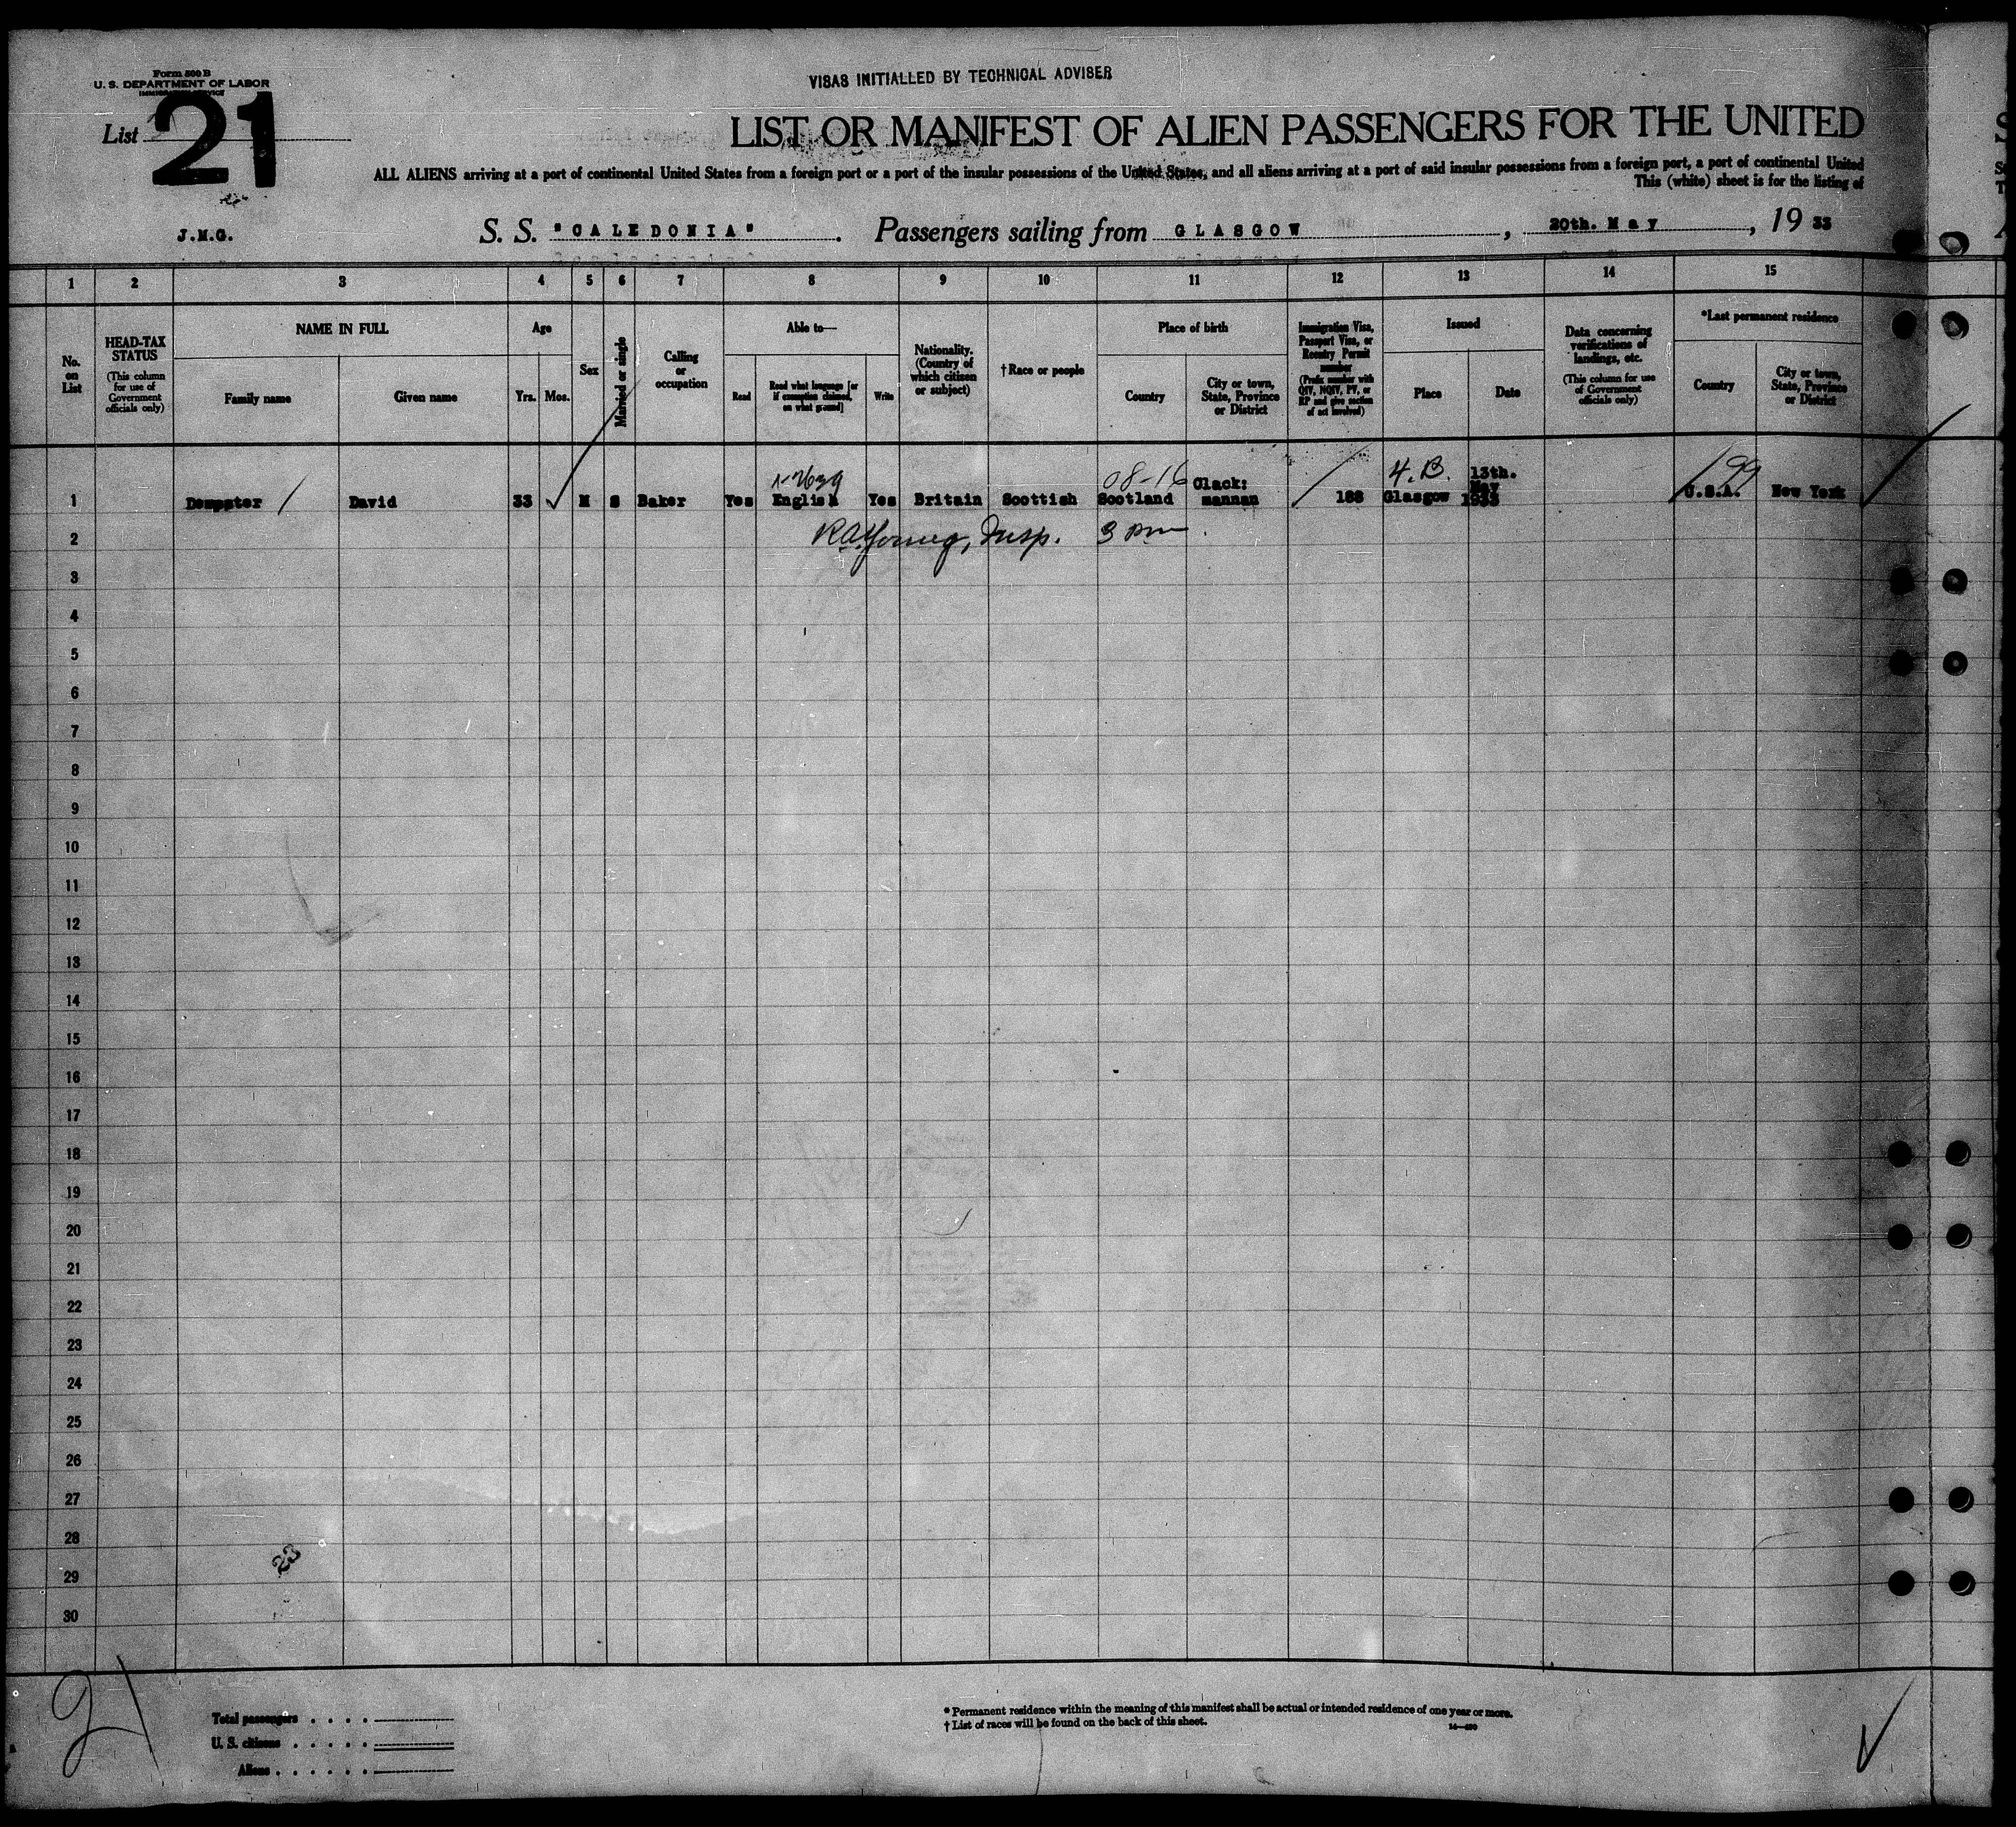 Form 500 B
U. S. DEPARTMENT OF LABOR
IMMIGRATION SERVICE
VISAS INITIALLED BY TECHNICAL ADVISER
List 21
LIST OR MANIFEST OF ALIEN PASSENGERS FOR THE UNITED
ALL ALIENS arriving at a port of continental United States from a foreign port or a port of the insular possessions of the United States, and all aliens arriving at a port of said insular possessions from a foreign port, a port of continental United
This (white) sheet is for the listing of
J.M.G.
S. S. "CALEDONIA". Passengers sailing from GLASGOW, 20th. May, 1933
1 2 3 4 5 6 7 8 9 10 11 12 13 14 15
No. on List
HEAD-TAX STATUS
(This column for use of Government officials only)
NAME IN FULL
Family name
Given name
Age
Yrs. Mos.
Sex
Married or single
Calling or occupation
Able to—
Read
Read what language [or if exemption claimed, on what ground]
Write
Nationality. (Country of which citizen or subject)
†Race or people
Place of birth
Country
City or town, State, Province or District
Immigration Visa, Passport Visa, or Reentry Permit number
(Prefix number with QIV, NQIV, PV, or RP and give section of act involved)
Issued
Place
Date
Data concerning verifications of landings, etc.
(This column for use of Government officials only)
*Last permanent residence
Country
City or town, State, Province or District
08-16 4.B. 199
1 Dempster David 33 M S Baker Yes English Yes Britain Scottish Scotland Clack: mannan 188 Glasgow 13th. May 1933 U.S.A. New York
2 R.A. Young, Insp. 3 pm
3
4
5
6
7
8
9
10
11
12
13
14
15
16
17
18
19
20
21
22
23
24
25
26
27
28
23
29
30
21
Total passengers
U. S. citizens
Aliens
* Permanent residence within the meaning of this manifest shall be actual or intended residence of one year or more.
† List of races will be found on the back of this sheet.